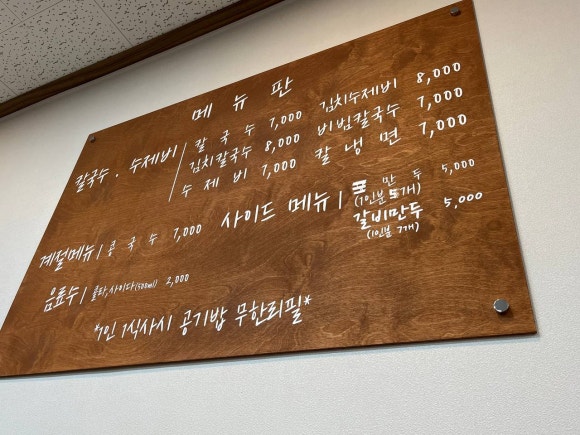 메뉴판
칼국수 · 수제비 / 칼국수 7,000 김치수제비 8,000
김치칼국수 8,000 비빔칼국수 7,000
수제비 7,000 칼냉면 7,000
계절메뉴 / 콩국수 7,000
사이드 메뉴 / 만두 5,000
(1인분 5개)
갈비만두 5,000
(1인분 7개)
음료수 / 콜라,사이다(500ml) 2,000
*1인 1식사시 공기밥 무한리필*